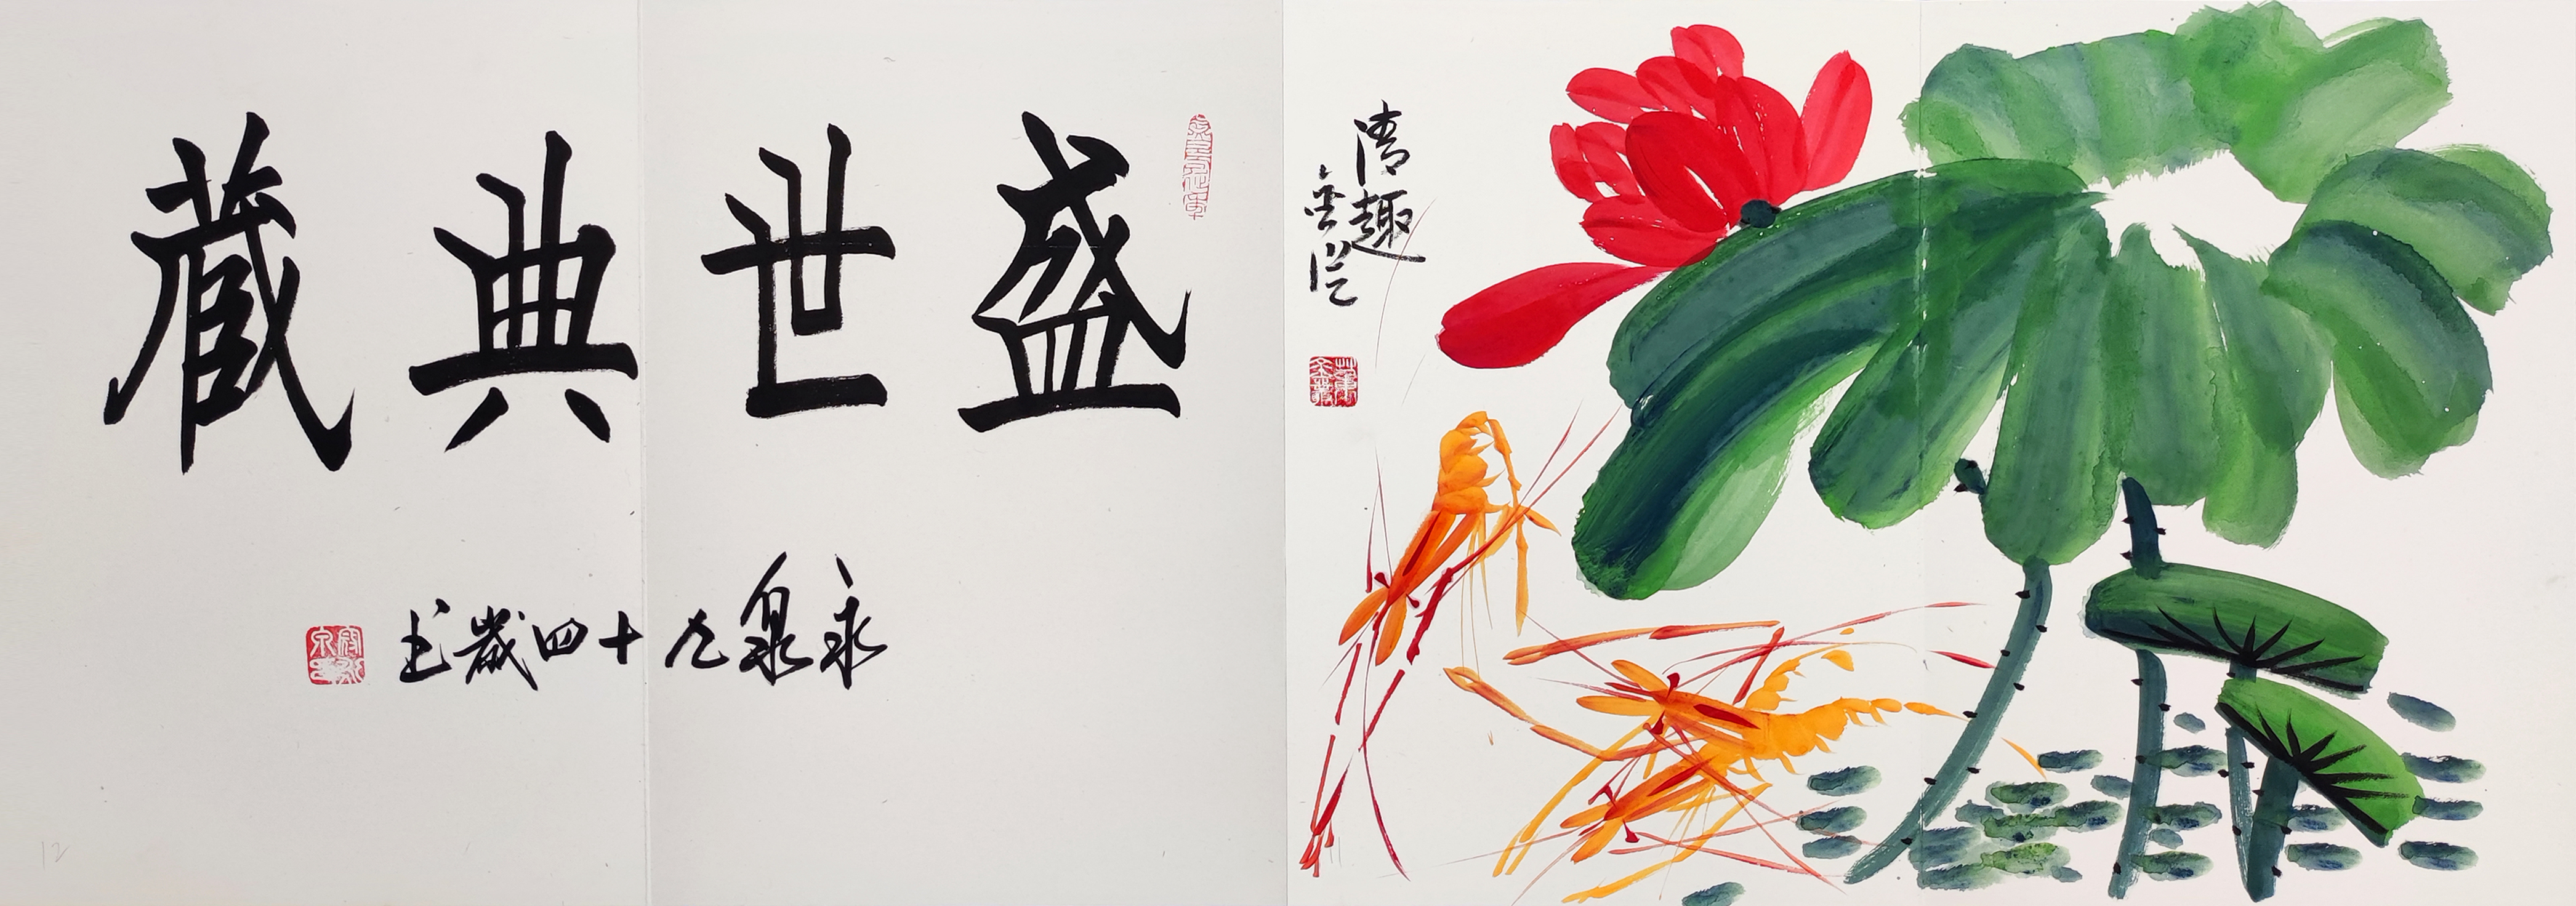 盛世典藏
永泉九十四歲书
清趣
12